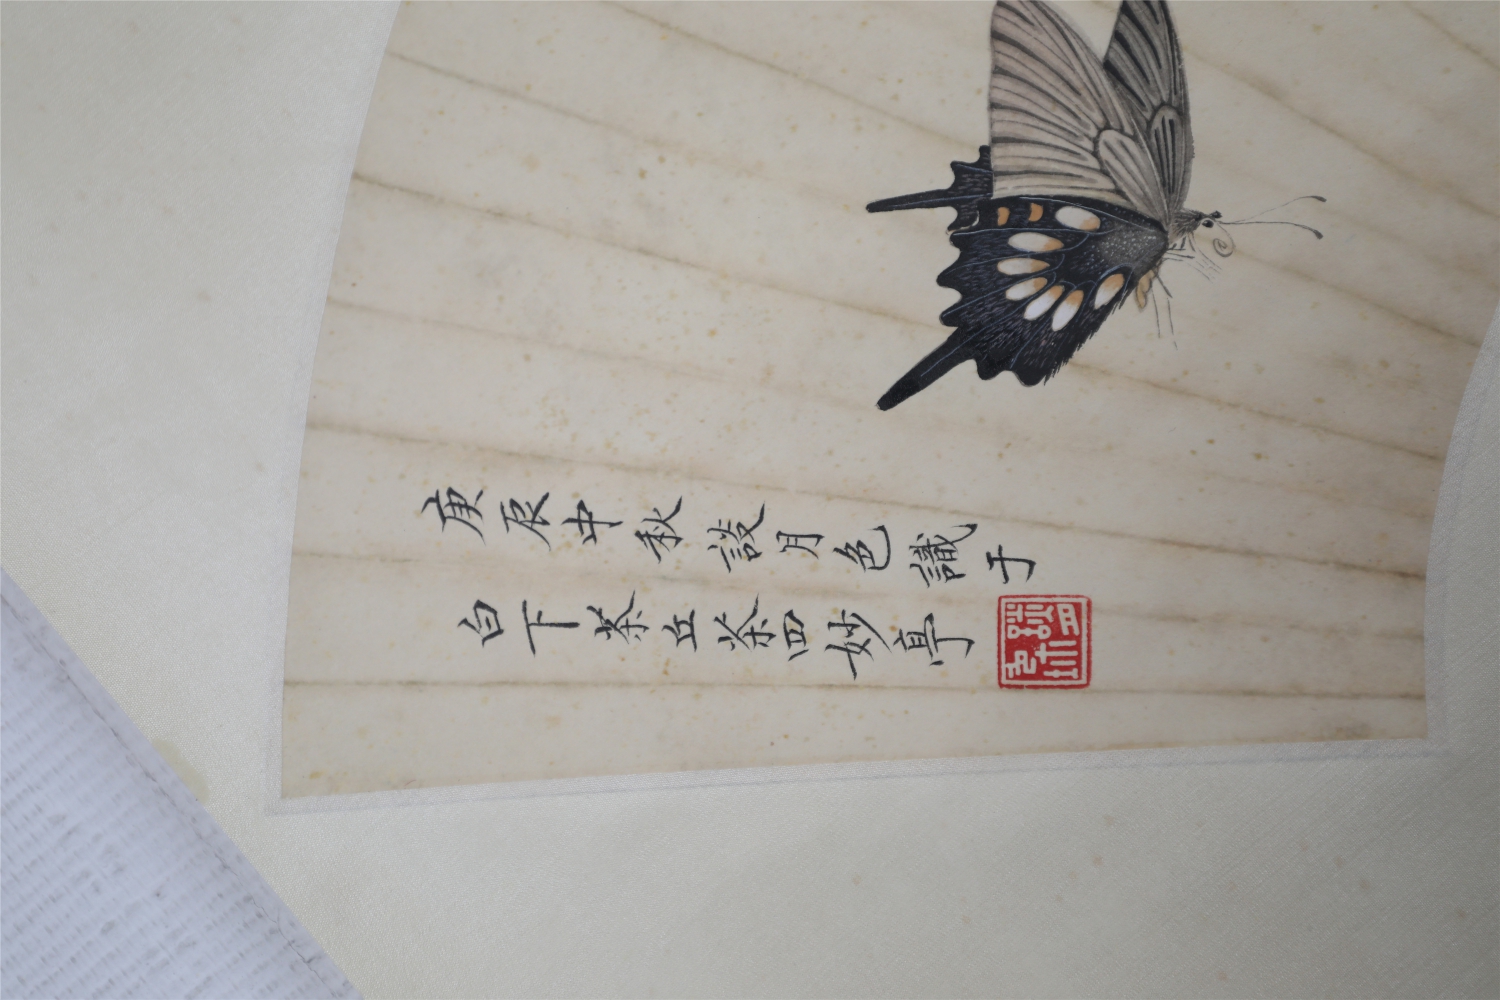 庚辰中秋談月色識于
白下茶丘茶四妙亭